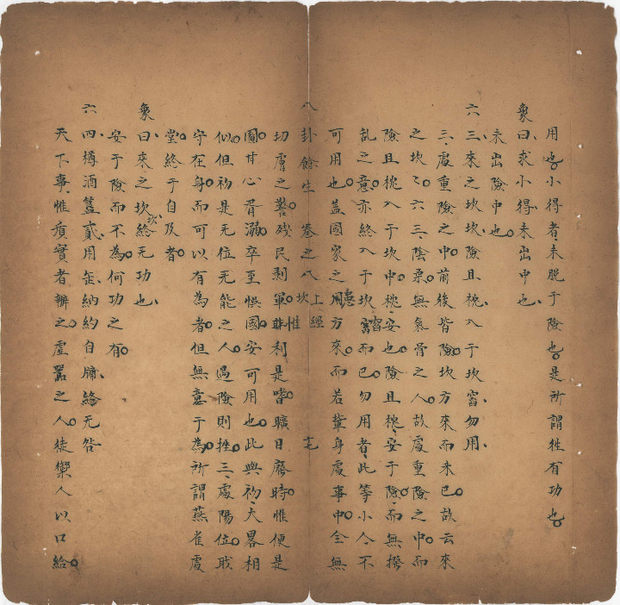 用也小得者未脫于險也是所謂徃有功也
象曰求小得未出中也
未出險中也
六三來之坎坎險且枕入于坎窞勿用
三處重險之中前後皆險坎方來而未已故云來
之坎〻六三陰柔無氣骨之人故處重險之中而
險且枕入于坎中枕安也險且枕安于險而無撥
亂之意亦終入于坎窞而已勿用者此等小人不
可用也蓋國家之患方來而若輩身處事中全無
八卦餘生 卷之八 上經 坎 十七
切膚之咎殘民剝軍惟利是嗜曠日廢時惟便是
圖甘心胥溺卒至悞國安可用也此與初六大畧相
似但初是无位无能之人遇險則挫三處陽位
守在身而可以有為者但無意于為所謂燕雀處
堂終于自及者
象曰來之坎坎終无功也
安于險而不為何功之有
六四樽酒簋貳用缶納約自牖終无咎
天下事惟質實者辦之虛囂之人徒禦人以口給